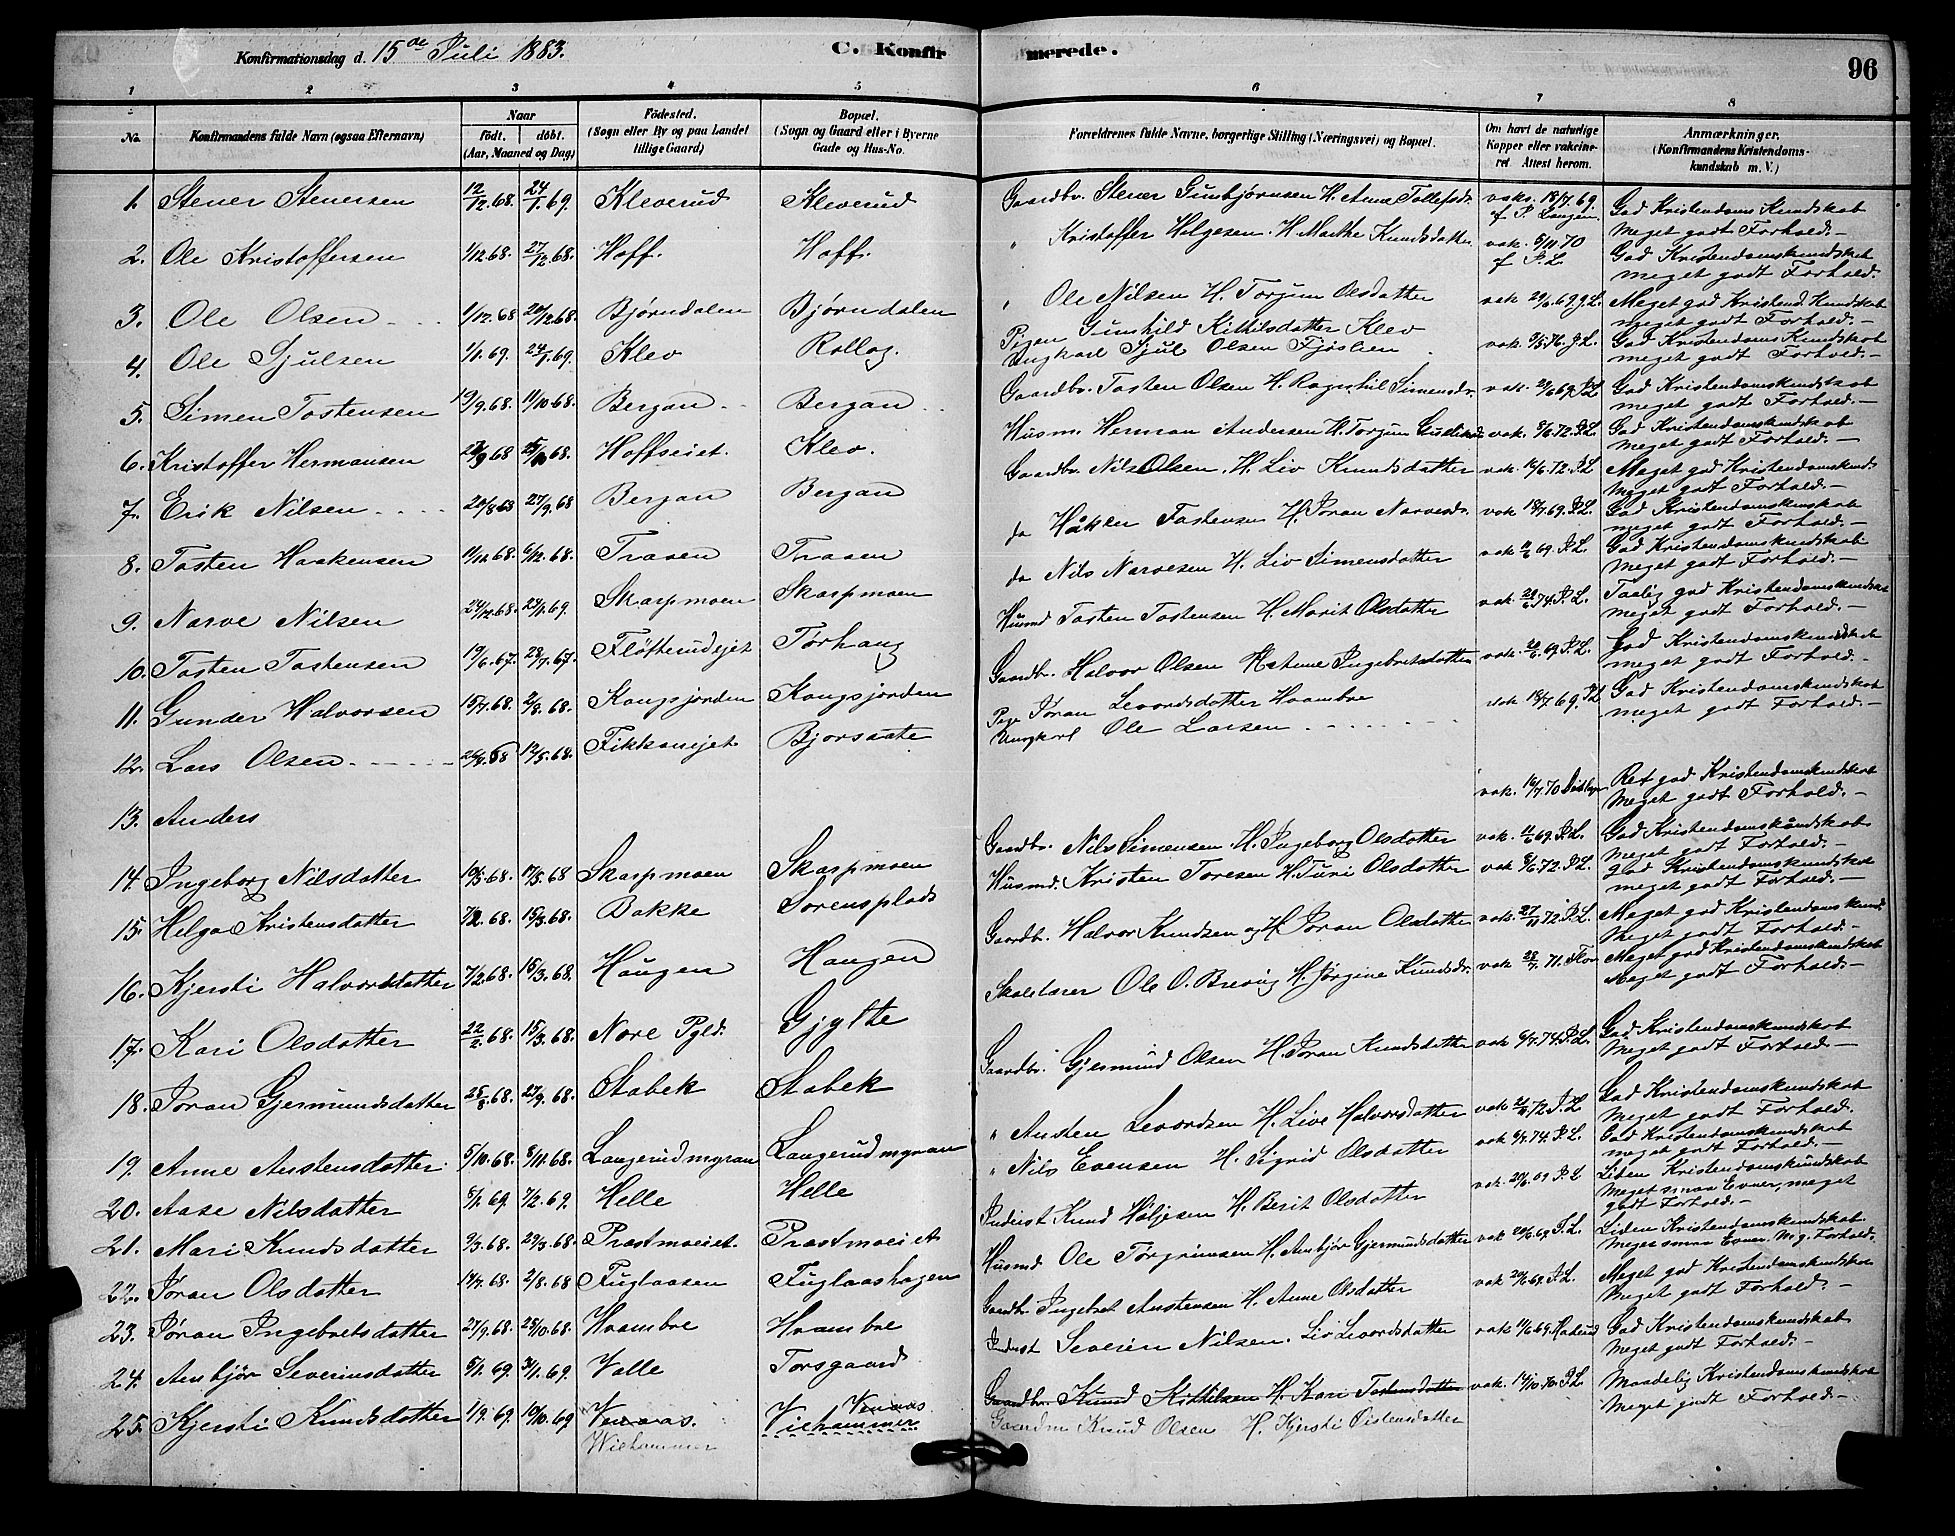 Konfirmationsdag d. 15de Juli 1883. C. Konfirmerede. 96
1 2 3 4 5 6 7 8
No. Konfirmandens fulde Navn (ogsaa Efternavn) Naar født. døbt. (Aar, Maaned og Dag) Fødested. (Sogn eller By og paa Landet tillige Gaard) Bopæl. (Sogn og Gaard eller i Byerne Gade og Hus-No. Forældrenes fulde Navne, borgerlige Stilling (Næringsvei) og Bopæl. Om havt de naturlige Kopper eller vakcineret Attest herom. Anmærkninger. (Konfirmandens Kristendomskundskab m. V.)
1. Stener Stenersen 12/12.68. 24/1.69. Kleverud Kleverud Gaardbr. Stener Gunbjørnsen H. Anne Tollefsdr. vaks. 18/7.69. f P. Langen God Kristendoms Kundskab Meget godt Forhold.-
2. Ole Kristoffersen 1/12.68. 27/12.68. Hoff. Hoff. " Kristoffer Helgesen. H. Marthe Knudsdatter vak. 5/11.70 f P.L. God Kristendomskundskab meget godt Forhold.
3. Ole Olsen 1/12.68 20/12.68. Bjørndalen Bjørndalen " Ole Nilsen H. Torjun Olsdatter vak 29/6.69. P.L. Meget god Kristend. Kundskab meget godt Forhold.-
4. Ole Sjulsen 1/1.69. 24/1.69. Klev Rollag. Pigen Gunhild Kittilsdatter Klev Ungkarl Sjul Olsen Fjøslien vak. 9/5.76. P.L. God Kristendoms Kundskab meget godt Forhold.-
5. Simen Tostensen 19/9.68. 11/10.68. Bergan Bergan Gaardbr. Tosten Olsen H. Ragnhil Simensdr. vak. 29/6.69. P.L. God Kristendomskundskab meget godt Forhold.-
6. Kristoffer Hermansen 20/9.68 25/10.68. Hoffseiet. Klev. Husm. Herman Andersen H. Torjun vak. 9/6.72. P.L. God Kristendomskundskab meget godt Forhold.-
7. Erik Nilsen 20/8.68 27/9.68 Bergan Bergan Gaardbr. Nils Olsen. H. Liv Knudsdatter vak 14/6.72. P.L Meget god Kristendomskunds meget godt Forhold.-
8. Tosten Haakensen 11/11.68. 6/12.68. Traaen Traaen do Håken Tostensen H. Jøran Narvesdr. vak 18/7.69. P.L. God Kristendomskundskab meget godt Forhold.-
9. Narve Nilsen 24/12.68. 23/1.69. Skarpmoen Skarpmoen do Nils Narvesen H. Liv Simensdatter vak 11/6.69. P.L. God Kristendomskundskab meget godt Forhold.-
10. Tosten Tostensen 19/6.67. 28/7.67. Fløtterudejet Tørhaug Husmd Tosten Tostensen H. Marit Olsdatter vak. 28/6.74. P.L. Taalig god Kristendomskundskab meget godt Forhold.-
11. Gunder Halvorsen 15/7.68. 2/8.68. Kongsjorden Kongsjorden Gaardbr. Halvor Olsen H. Anne Ingebretsdatter vak. 20/6.69. P.L. God Kristendomskundskab meget godt Forhold.-
12. Lars Olsen 26/4.68 12/5.68. Fikkaneiet. Bjørsaate Pige Jøran Levordsdatter Hvambre Ungkarl Ole Larsen vak 18/7.69. P.L. God Kristendomskundskab meget godt Forhold.-
13. Anders vak. 14/7.70 Ret god Kristendomskundskab Meget godt Forhold.-
14. Ingeborg Nilsdatter 10/5.68. 17/5.68 Skarpmoen Skarpmoen Gaardbr. Nils Simensen. H. Ingeborg Olsdatter vak. 11/6.69. P.L. God Kristendomskundskab meget godt Forhold.-
15. Helga Kristensdatter 7/2.68. 15/3.68. Bakke Sorensplads Husmd. Kristen Toresen H. Turi Olsdatter vak 9/6.72. P.L. God Kristendomskundskab meget godt Forhold.-
16. Kjersti Halvorsdatter 7/2.68. 15/3.68. Haugen Haugen Gaardbr. Halvor Knudsen og H. Jøran Olsdatter vak. 27/11.72. P.L. Meget god Kristendomskund. Meget godt Forhold.-
17. Kari Olsdatter 22/2.68. 15/3.68. Nore Pgld. Gjytte Skolelærer Ole O. Brevig H. Jørgine Knudsdr. vak 28/7.71. Meget god Kristendomskundskab Meget godt Forhold.-
18. Jøran Gjermundsdatter 25/8.68. 27/9.68. Stabek Stabek Gaardbr. Gjermund Olsen H. Jøran Knudsdatter vak 9/7.74. P.L. God Kristendomskundskab Meget godt Forhold.-
19. Anne Austensdatter 5/10.68. 8/11.68. Langerudmyran Langerudmyran " Austen Levordsen H. Live Halvorsdatter vak 21/6.72 P.L God Kristendomskundskab meget godt Forhold.
20. Aase Nilsdatter 8/1.69. 7/2.69. Helle Helle " Nils Evensen H. Sigrid Olsdatter vak 9/7.74. P.L. God Kristendomskundskab meget godt Forhold.-
21. Mari Knudsdatter 9/3.68. 29/3.68. Prestmoeiet. Prestmoeiet Inderst Knud Holjesen H. Berit Olsdatter vak. 20/6.69 P.L Liden Kristendomskundskab Meget smaa Evner, meget godt Forhold.-
22. Jøran Olsdatter 14/7.68. 2/8.68 Fuglaasen Fuglaashagen Husmd Ole Torgrimsen H. Anbjør Gjermundsdatter vak 20/6.69. P.L. Liden Kristendomskundskab Meget smaa Evner, M. g. Forhold.
23. Jøran Ingebretsdatter 27/9.68. 25/10.68. Hvambre Hvambre Gaardbr. Ingebret Austensen H. Anne Olsdatter vak 20/6.69. P.L. Meget god Kristendomskundskab Meget godt Forhold.-
24. Anbjør Severinsdatter 5/1.69. 31/1.69. Valle Torsgaard Inderst Severin Nilsen. Liv Levordsdatter vak 11/6.69. God Kristendomskundskab Meget godt Forhold.-
25. Kjersti Knudsdatter 1/9.69. 10/10.69 Venaas. Wiehammer Venaas Viehammer Gaardbr. Knud Kittilsen H. Kari Tostensdatter Gaardm Knud Olsen H. Kjersti Øistensdatter vak. 14/10.70. P.L. Maadelig Kristendomskundskab Meget godt Forhold.-